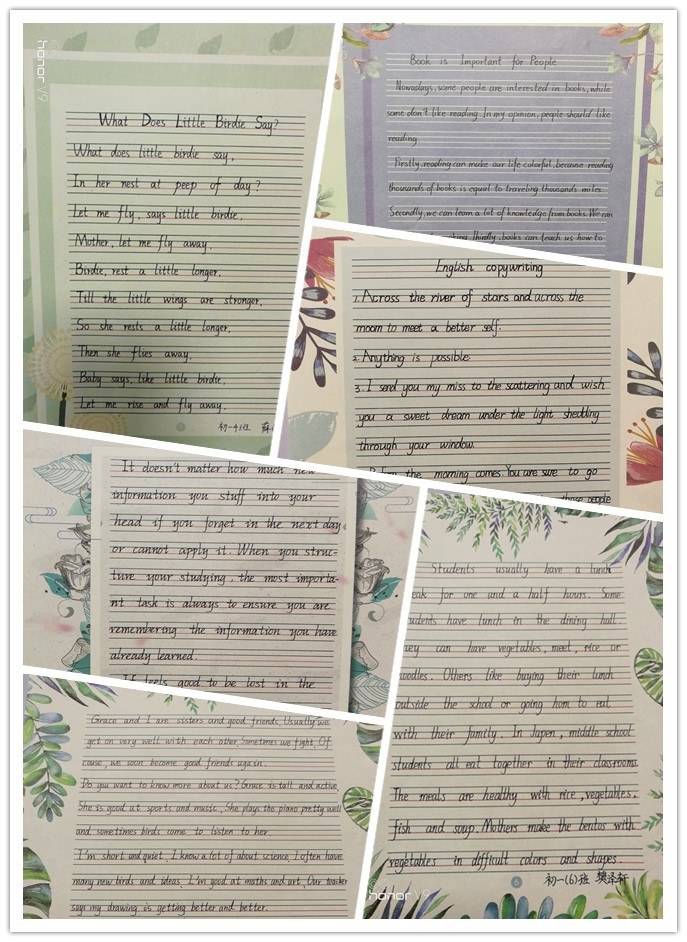 honor V9
What Does Little Birdie Say?
What does little birdie say,
In her nest at peep of day?
Let me fly, says little birdie,
Mother, let me fly away.
Birdie, rest a little longer,
Till the little wings are stronger.
So she rests a little longer,
Then she flies away.
Baby says, like little birdie,
Let me rise and fly away.
初一4班
Book is Important for People
Nowadays, some people are interested in books, while
some don't like reading. In my opinion, people should like
reading
Firstly, reading can make our life colorful, because reading
thousands of books is equal to traveling thousands miles
Secondly, we can learn a lot of knowledge from books. We can
Thirdly, books can teach us how to
English copywriting
1. Across the river of stars and across the
moom to meet a better self.
2. Anything is possible
3. I send you my miss to the scattering and wish
you a sweet dream under the light shedding
through your window.
the morning comes. You are sure to go
those people
It doesn't matter how much new
information you stuff into your
head if you forget in the next day
or cannot apply it. When you struc-
ture your studying, the most importa-
nt task is always to ensure you are
remembering the information you have
already learned.
It feels good to be lost in the
Students usually have a lunch
eak for one and a half hours. Some
udents have lunch in the dining hall.
hey can have vegetables, meet, rice or
noodles. Others like buying their lunch
outside the school or going hom to eat
with their family. In Japen, middle school
students all eat together in their classrooms.
The meals are healthy with rice, vegetables,
fish and soup. Mothers make the bentos with
vegetables in difficult colors and shapes.
初一(6)班 樊泽轩
honor V9
Grace and I are sisters and good friends. Usually, we
get on very well with each other. Sometimes we fight. Of
cause, we soon become good friends again.
Do you want to know more about us? Grace is tall and active,
She is good at sports and music. She plays the piano pretty well
and sometimes birds come to listen to her.
I'm short and quiet. I know a lot of about science. I often have
many new birds and ideas. I'm good at maths and art. Our teacher
says my drawing is getting better and better.